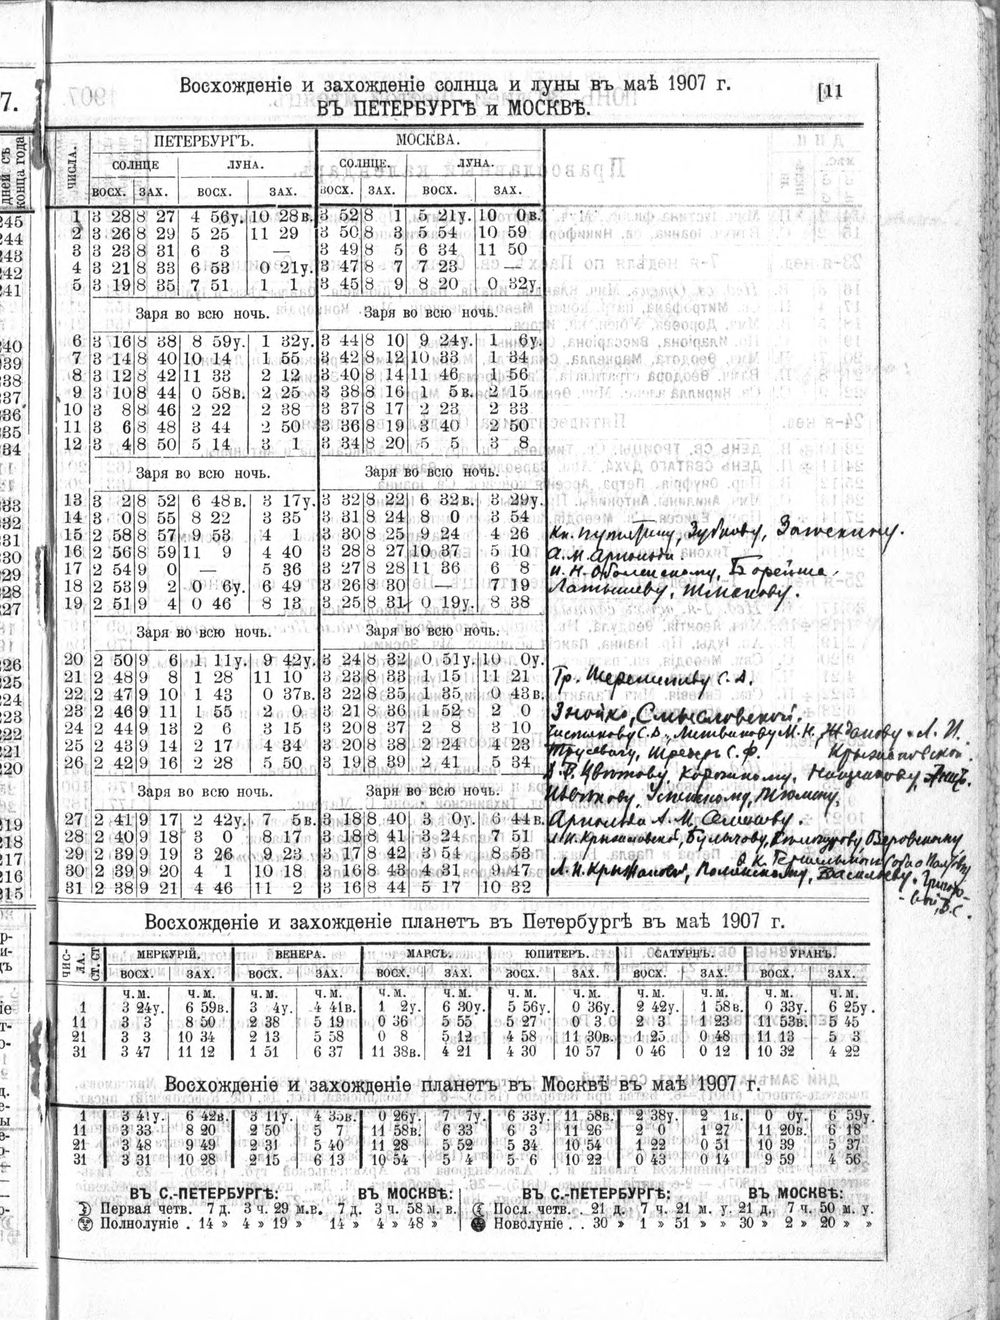 7.
дней съ
конца года
245
244
243
242
241
240
239
238
237
236
235
234
233
232
231
230
229
228
227
226
225
224
223
222
221
220
219
218
217
216
215
Восхожденіе и захожденіе солнца и луны въ маѣ 1907 г. [11
ВЪ ПЕТЕРБУРГѢ и МОСКВѢ.
ЧИСЛА. ПЕТЕРБУРГЪ. МОСКВА.
СОЛНЦЕ ЛУНА. СОЛНЦЕ. ЛУНА.
ВОСХ. ЗАХ. ВОСХ. ЗАХ. ВОСХ. ЗАХ. ВОСХ. ЗАХ.
1 3 28 8 27 4 56у. 10 28в. 3 52 8 1 5 21у. 10 0в.
2 3 26 8 29 5 25 11 29 3 50 8 3 5 54 10 59
3 3 23 8 31 6 3 — 3 49 8 5 6 34 11 50
4 3 21 8 33 6 53 0 21у. 3 47 8 7 7 23 —
5 3 19 8 35 7 51 1 1 3 45 8 9 8 20 0 32у.
Заря во всю ночь. Заря во всю ночь.
6 3 16 8 38 8 59у. 1 32у. 3 44 8 10 9 24у. 1 6у.
7 3 14 8 40 10 14 1 55 3 42 8 12 10 33 1 34
8 3 12 8 42 11 33 2 12 3 40 8 14 11 46 1 56
9 3 10 8 44 0 58в. 2 25 3 38 8 16 1 5в. 2 15
10 3 8 8 46 2 22 2 38 3 37 8 17 2 23 2 33
11 3 6 8 48 3 44 2 50 3 36 8 19 3 40 2 50
12 3 4 8 50 5 14 3 1 3 34 8 20 5 5 3 8
Заря во всю ночь. Заря во всю ночь.
13 3 2 8 52 6 48в. 3 17у. 3 32 8 22 6 32в. 3 29у.
14 3 0 8 55 8 22 3 35 3 31 8 24 8 0 3 54
15 2 58 8 57 9 53 4 1 3 30 8 25 9 24 4 26 Кн. Путятину, Зубкову,
16 2 56 8 59 11 9 4 40 3 28 8 27 10 37 5 10 А. М. Арнольди
17 2 54 9 0 — 5 36 3 27 8 28 11 36 6 8 И. Н. Оболенскому, Борейше,
18 2 53 9 2 0 6у. 6 49 3 26 8 30 — 7 19 Латышеву,
19 2 51 9 4 0 46 8 13 3 25 8 31 0 19у. 8 38
Заря во всю ночь. Заря во всю ночь.
20 2 50 9 6 1 11у. 9 42у. 3 24 8 32 0 51у. 10 0у.
21 2 48 9 8 1 28 11 10 3 23 8 33 1 15 11 21 Гр. Шереметеву С. Д.
22 2 47 9 10 1 43 0 37в. 3 22 8 35 1 35 0 43в.
23 2 46 9 11 1 55 2 0 3 21 8 36 1 52 2 0 Знойко, Смысловской.
24 2 44 9 13 2 6 3 15 3 20 8 37 2 8 3 10 Литвинову М. Н., Жданову. Л. И.
25 2 43 9 14 2 17 4 34 3 20 8 38 2 24 4 23 Трусевичу, С. Ф. Крыжановской
26 2 42 9 16 2 28 5 50 3 19 8 39 2 41 5 34 Цветкову,
Заря во всю ночь. Заря во всю ночь. Цветкову, Успенскому,
27 2 41 9 17 2 42у. 7 5в. 3 18 8 40 3 0у. 6 44в. Арнольди А. М.
28 2 40 9 18 3 0 8 17 3 18 8 41 3 24 7 51 Л. И. Крыжановской, Булычову,
29 2 39 9 19 3 26 9 23 3 17 8 42 3 54 8 53
30 2 39 9 20 4 1 10 18 3 16 8 43 4 31 9 47 Л. И. Крыжановской, Васильеву,
31 2 38 9 21 4 46 11 2 3 16 8 44 5 17 10 32 В. С.
Восхожденіе и захожденіе планетъ въ Петербургѣ въ маѣ 1907 г.
ЧИС-ЛА. СТ. СТ. МЕРКУРІЙ. ВЕНЕРА. МАРСЪ. ЮПИТЕРЪ. САТУРНЪ. УРАНЪ.
ВОСХ. ЗАХ. ВОСХ. ЗАХ. ВОСХ. ЗАХ. ВОСХ. ЗАХ. ВОСХ. ЗАХ. ВОСХ. ЗАХ.
ч. м. ч. м. ч. м. ч. м. ч. м. ч. м. ч. м. ч. м. ч. м. ч. м. ч. м. ч. м.
1 3 24у. 6 59в. 3 4у. 4 41в. 1 2у. 6 30у. 5 56у. 0 36у. 2 42у. 1 58в. 0 33у. 6 25у.
11 3 3 8 50 2 38 5 19 0 36 5 55 5 27 0 3 2 3 1 23 11 53в. 5 45
21 3 3 10 34 2 13 5 58 0 8 5 12 4 58 11 30в. 1 25 0 48 11 13 5 3
31 3 47 11 12 1 51 6 37 11 38в. 4 21 4 30 10 57 0 46 0 12 10 32 4 22
Восхожденіе и захожденіе планетъ въ Москвѣ въ маѣ 1907 г.
1 3 41у. 6 42в. 3 11у. 4 35в. 0 26у. 7 7у. 6 33у. 11 58в. 2 38у. 2 1в. 0 0у. 6 59у.
11 3 33 8 20 2 50 5 7 11 58в. 6 33 6 3 11 26 2 0 1 27 11 20в. 6 18
21 3 48 9 49 2 31 5 40 11 28 5 52 5 34 10 54 1 22 0 51 10 39 5 37
31 3 31 10 28 2 15 6 13 10 54 5 4 5 6 10 22 0 43 0 14 9 59 4 56
ВЪ С.-ПЕТЕРБУРГѢ: ВЪ МОСКВѢ: ВЪ С.-ПЕТЕРБУРГѢ: ВЪ МОСКВѢ:
Первая четв. 7 д. 3 ч. 29 м. в. 7 д. 3 ч. 58 м. в. Посл. четв. . 21 д. 7 ч. 21 м. у. 21 д. 7 ч. 50 м. у.
Полнолуніе . 14 » 4 » 19 » 14 » 4 » 48 » Новолуніе . . 30 » 1 » 51 » » 30 » 2 » 20 » »